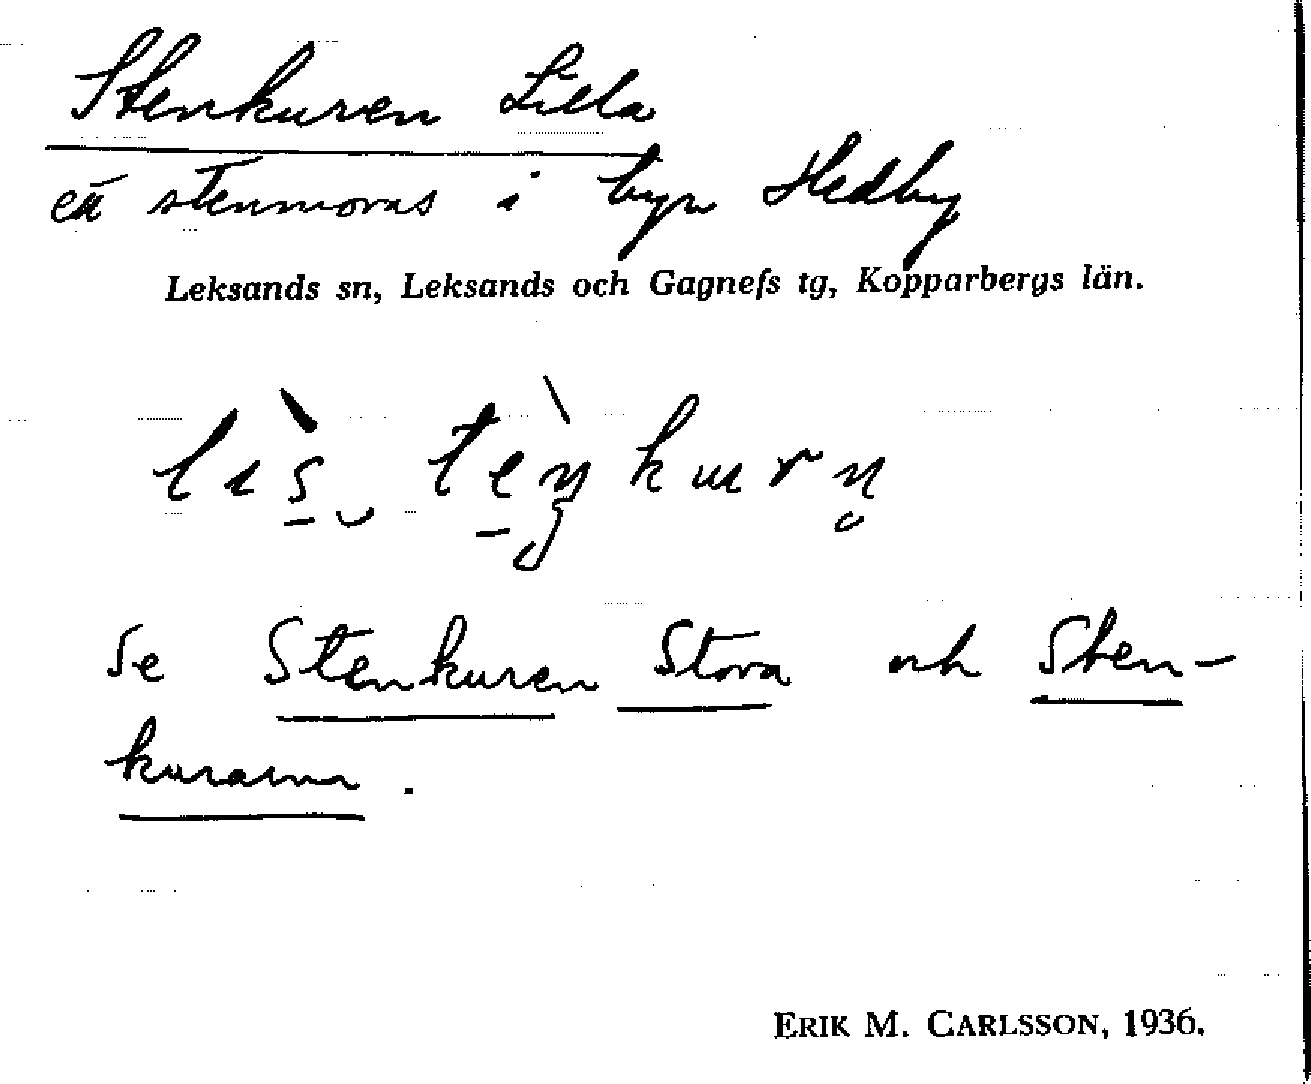 Stenkuren Lilla
ett stenmoras i byn Hedby
Leksands sn, Leksands och Gagnefs tg, Kopparbergs län.
Se Stenkuren Stora och Sten-
kurarna.
ERIK M. CARLSSON, 1936.